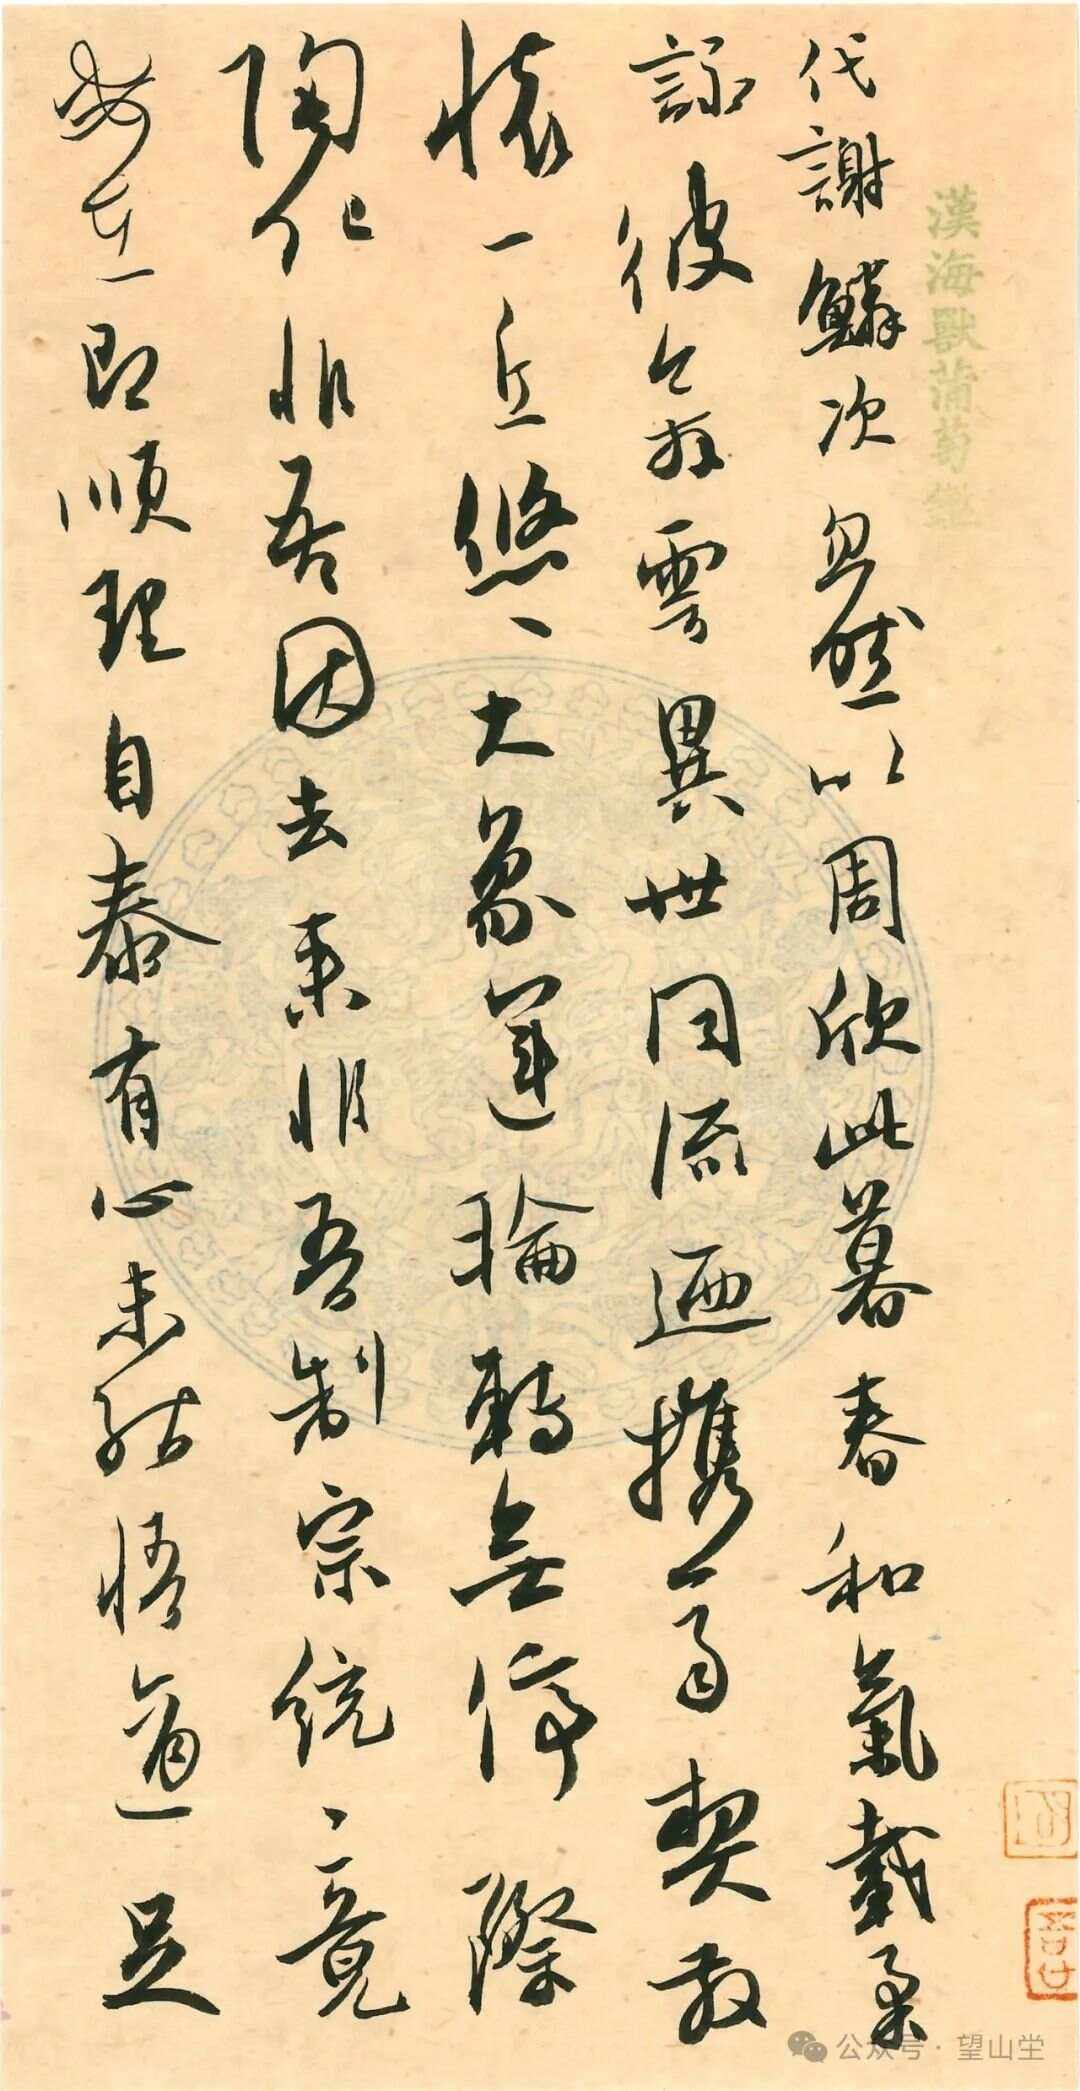 漢海獸蒲萄鑑
代謝鱗次忽然以周欣此暮春和氣載柔
詠彼舞雩異世同流迺攜齊契散
懷一丘悠〻大象運輪轉無停際
陶化非吾因去來非吾制宗統竟
安在即順理自泰有心未能悟適足
公众号·望山堂